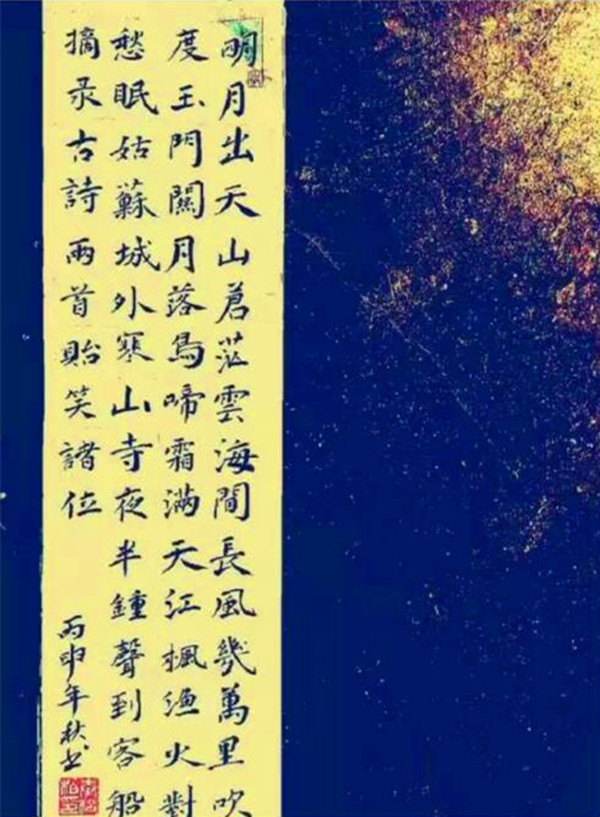 明月出天山蒼茫雲海間長風幾萬里吹
度玉門關月落烏啼霜滿天江楓漁火對
愁眠姑蘇城外寒山寺夜半鐘聲到客船
摘录古詩兩首貽笑諸位
丙申年秋书